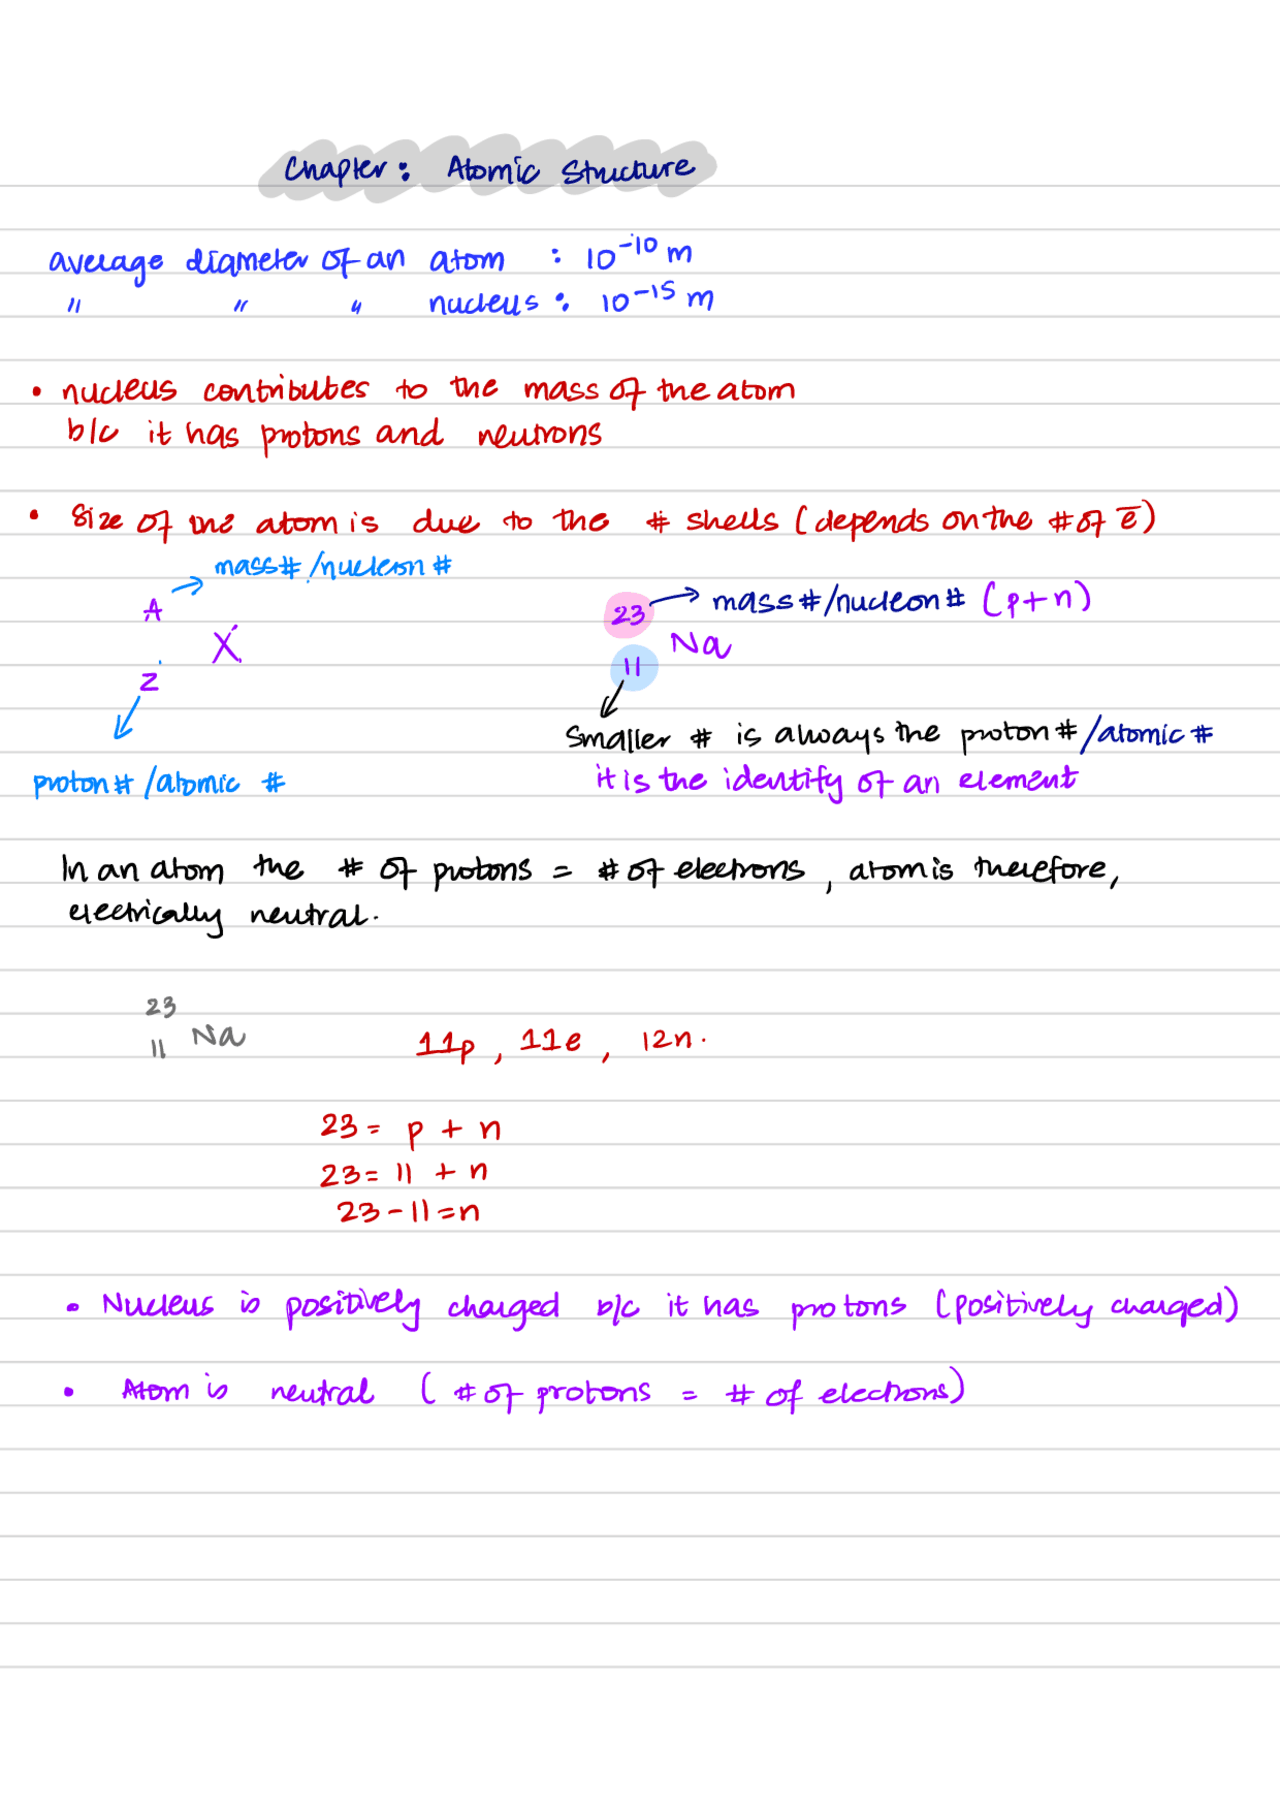 Chapter: Atomic Structure
average diameter of an atom : 10⁻¹⁰ m
" " " nucleus : 10⁻¹⁵ m
• nucleus contributes to the mass of the atom
b/c it has protons and neutrons
• Size of the atom is due to the # shells (depends on the # of e̅)
mass# /nucleon #
A
X
Z
proton# /atomic #
23 mass #/nucleon # (p+n)
Na
11
Smaller # is always the proton# /atomic #
it is the identify of an element
In an atom the # of protons = # of electrons, atom is therefore,
electrically neutral.
23
Na
11
11p, 11e, 12n.
23 = p + n
23 = 11 + n
23 - 11 = n
• Nucleus is positively charged b/c it has protons (positively charged)
• Atom is neutral (# of protons = # of electrons)